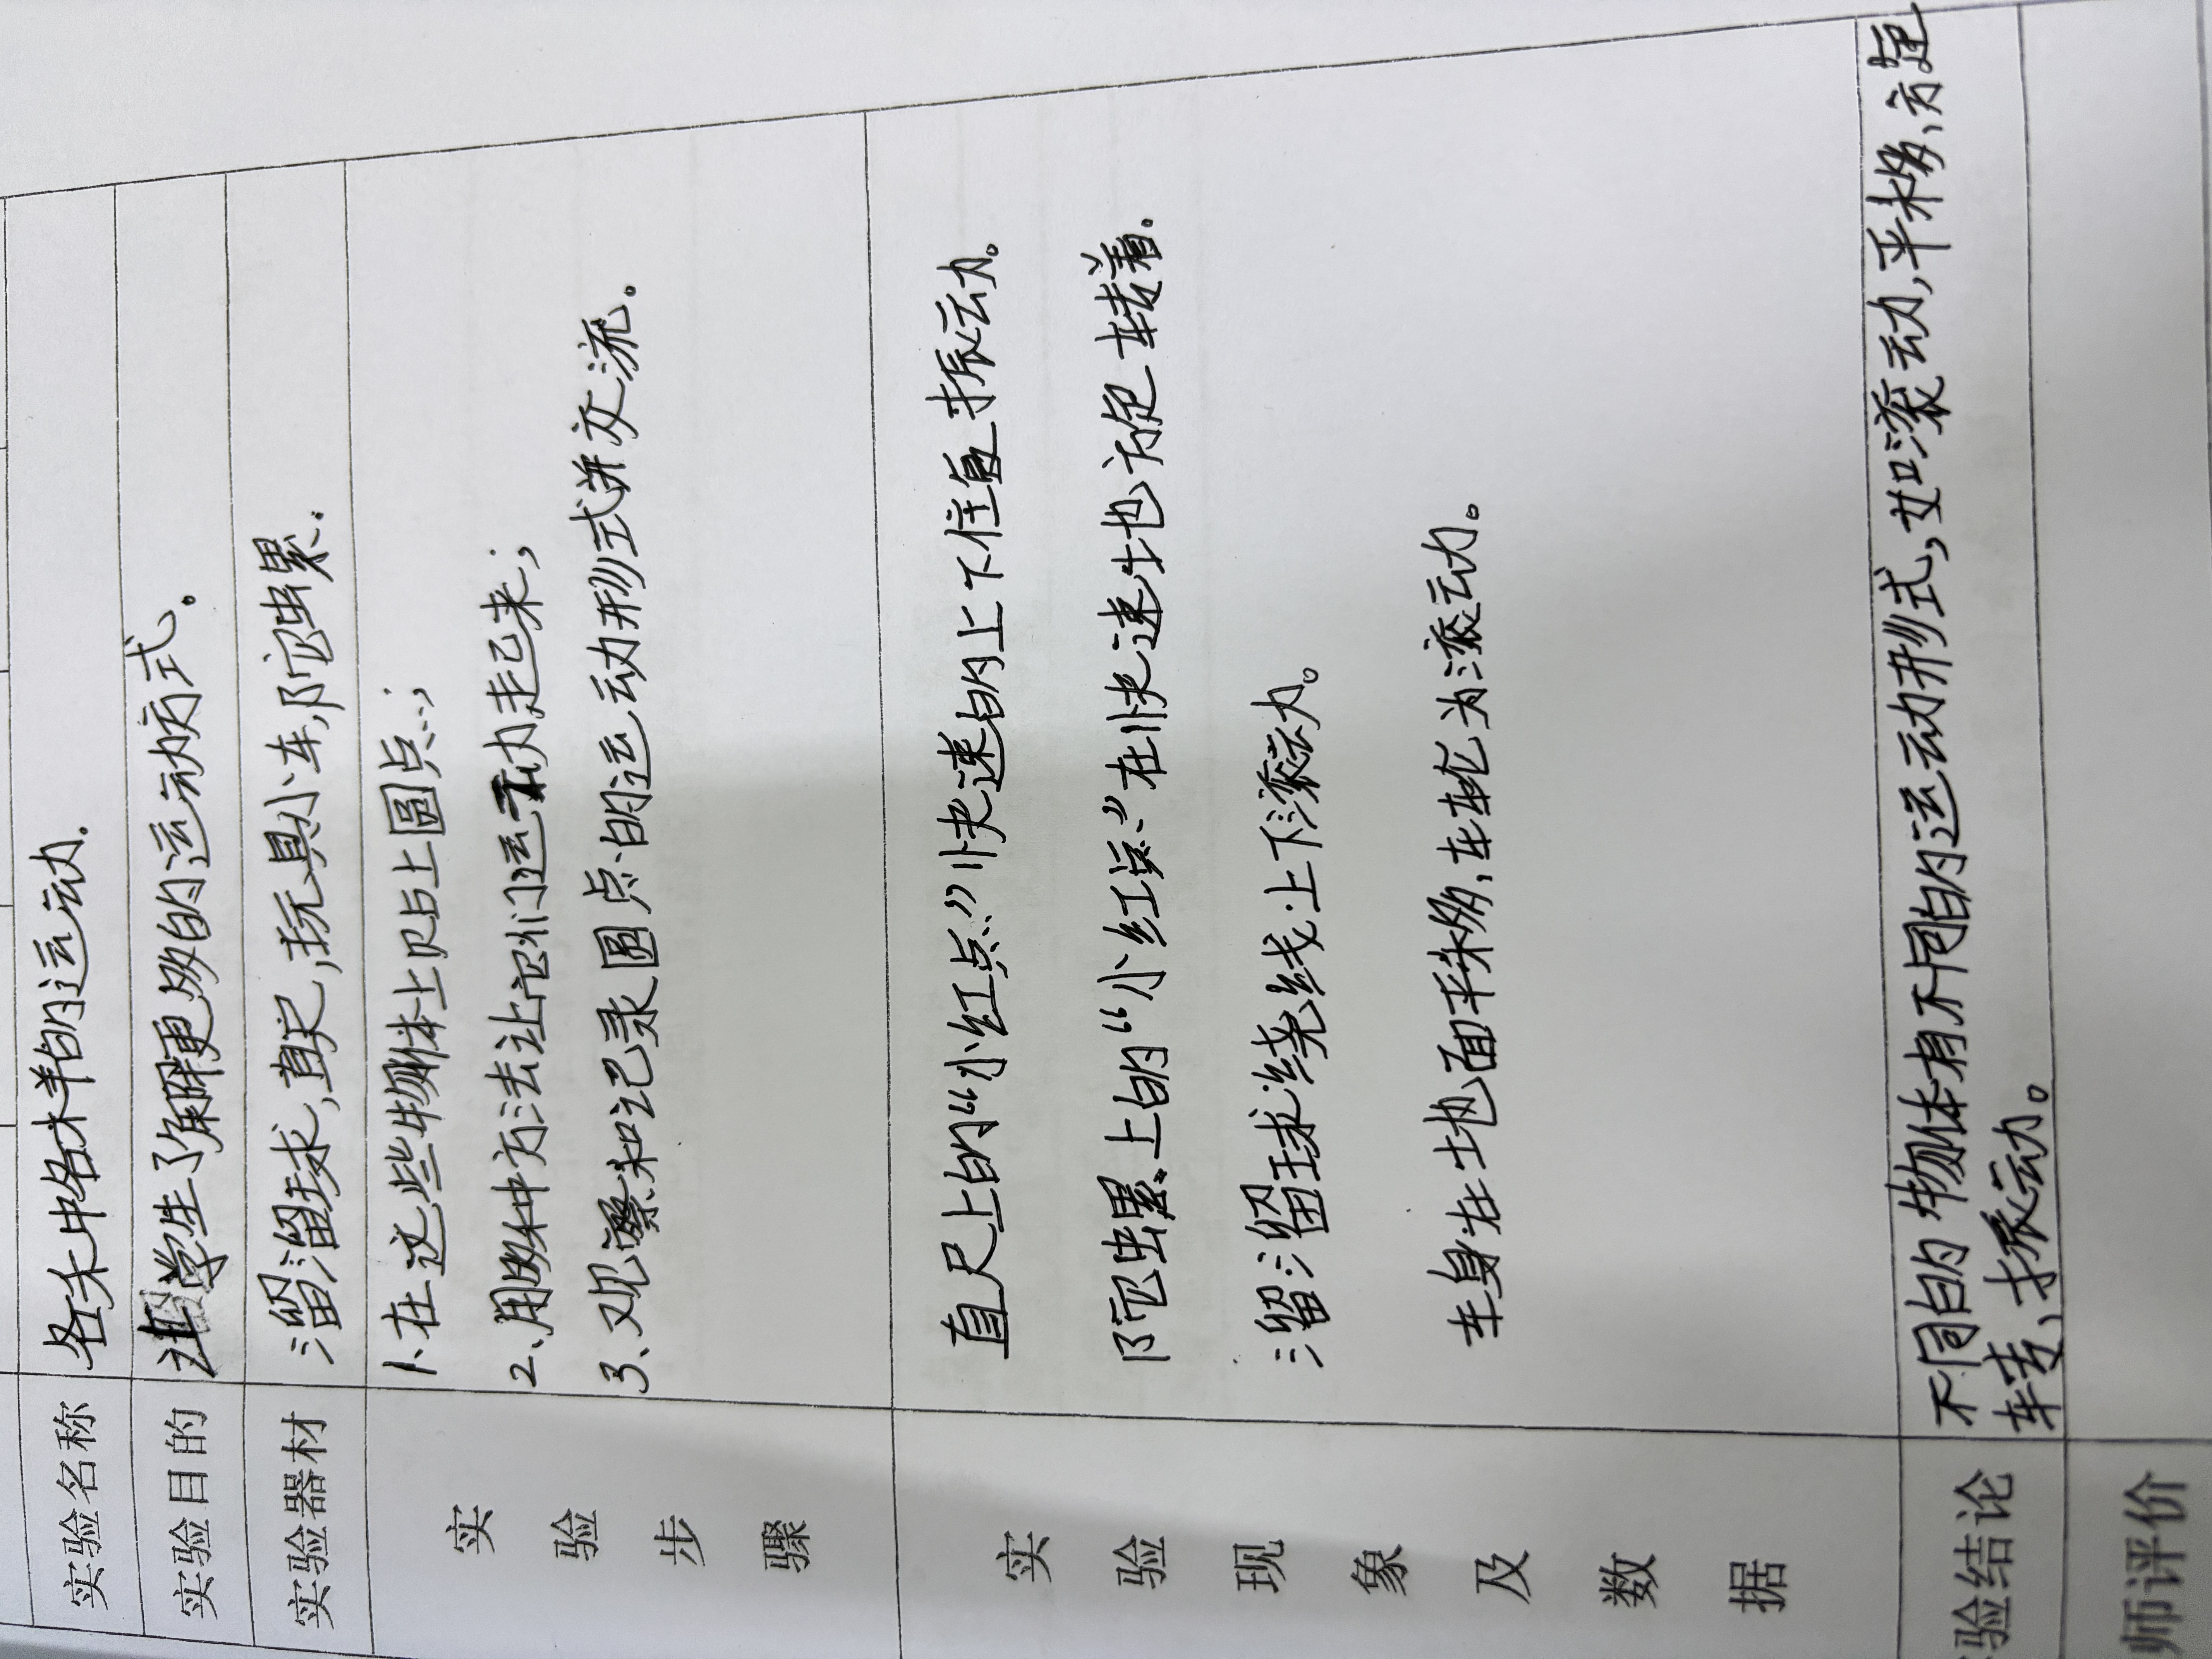 实验名称 各种各样的运动.
实验目的 让学生了解更多的运动方式。
实验器材 溜溜球,直尺,玩具小车,陀螺.
实验步骤
1.在这些物体上贴上圆点;
2、用多种方法让它们运动起来;
3、观察和记录圆点的运动形式并交流。
实验现象及数据
直尺上的“小红点”快速的上下往复振动。
陀螺上的“小红点”在快速地旋转着.
溜溜球绕线上下滚动。
车身在地面平移,车轮为滚动。
验结论
不同的物体有不同的运动形式,如滚动,平移、旋
转、振动。
师评价